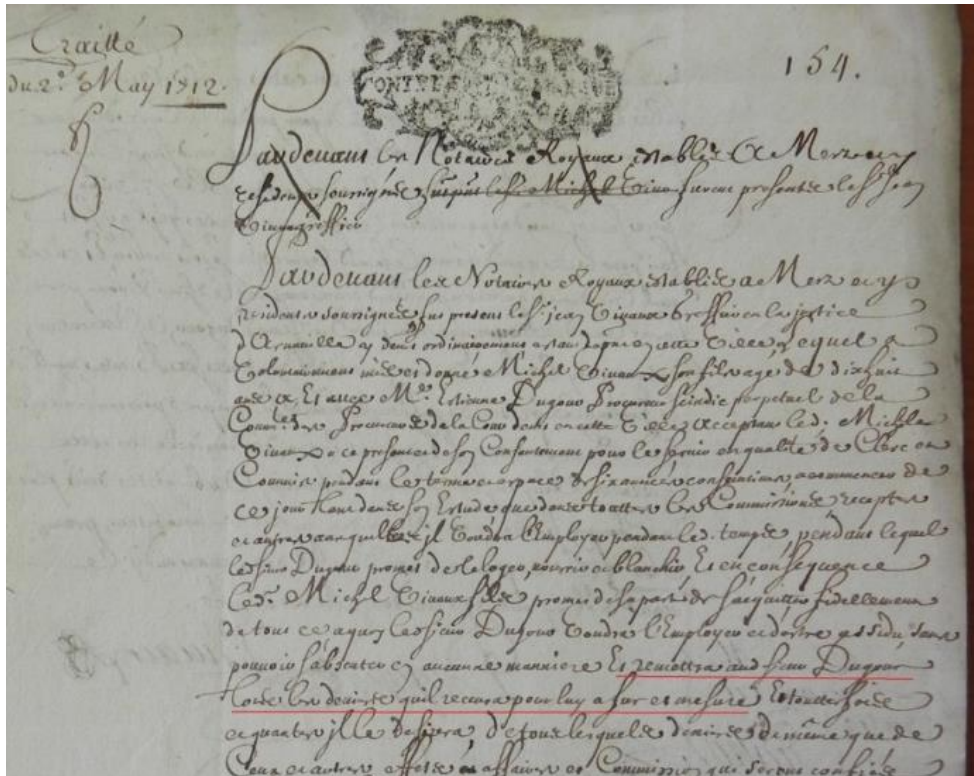 Traitté
du 2e. May 1712.
154.
Pardevant les Notaires Royaux establis A Metz et y
residents soubsignés furent le Sr. Michel Vivaux furent presents le Sr Jean
Vivaux greffier
Pardevant les Notaires Royaux establis a Metz et y
Residents soubsignés fut present le Sr. jean Vivaux Greffier en la justice
d'Arnaville y demt. ordinairement estant de present en cette Ville, Lequel a
Volontairement mis et donné Michel Vivaux son fils âgé de dixhuit
ans A Et avec Me. Estienne Dugour Procureur scindic perpetuel de la
Commté. des Procureurs de la Cour demt. en cette Ville acceptant led. Michel
Vivaux a ce present et de son Consentement pour le servir en qualité de Clerc et
Commis pendant le terme et espace de six années consecutives a commencer de
ce jour tant dans son Estude que dans touttes les Commissions receptes
et autres auxquelles il Voudra l'Employer pendant led. temps, pendant lequel
led. sieur Dugour promet de le loger, nourrir et blanchir Et en conséquence
led. Michel Vivaux fils promet de sa part de s'acquitter fidellement
de tout ce a quoy led. sieur Dugour Voudra l'Employer et d'estre assidu sans
pouvoir s'absenter en aucune manniere Et remettra aud. sieur Dugour
tous les deniers qu'il recevra pour luy a fur et mesure Et touttes fois
et quantes il le desirera, de tous lesquels deniers de même que de
Ceux et autres effets et affaires et Commission qui seront confiés